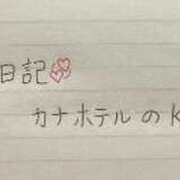 日記
カナホテル の K